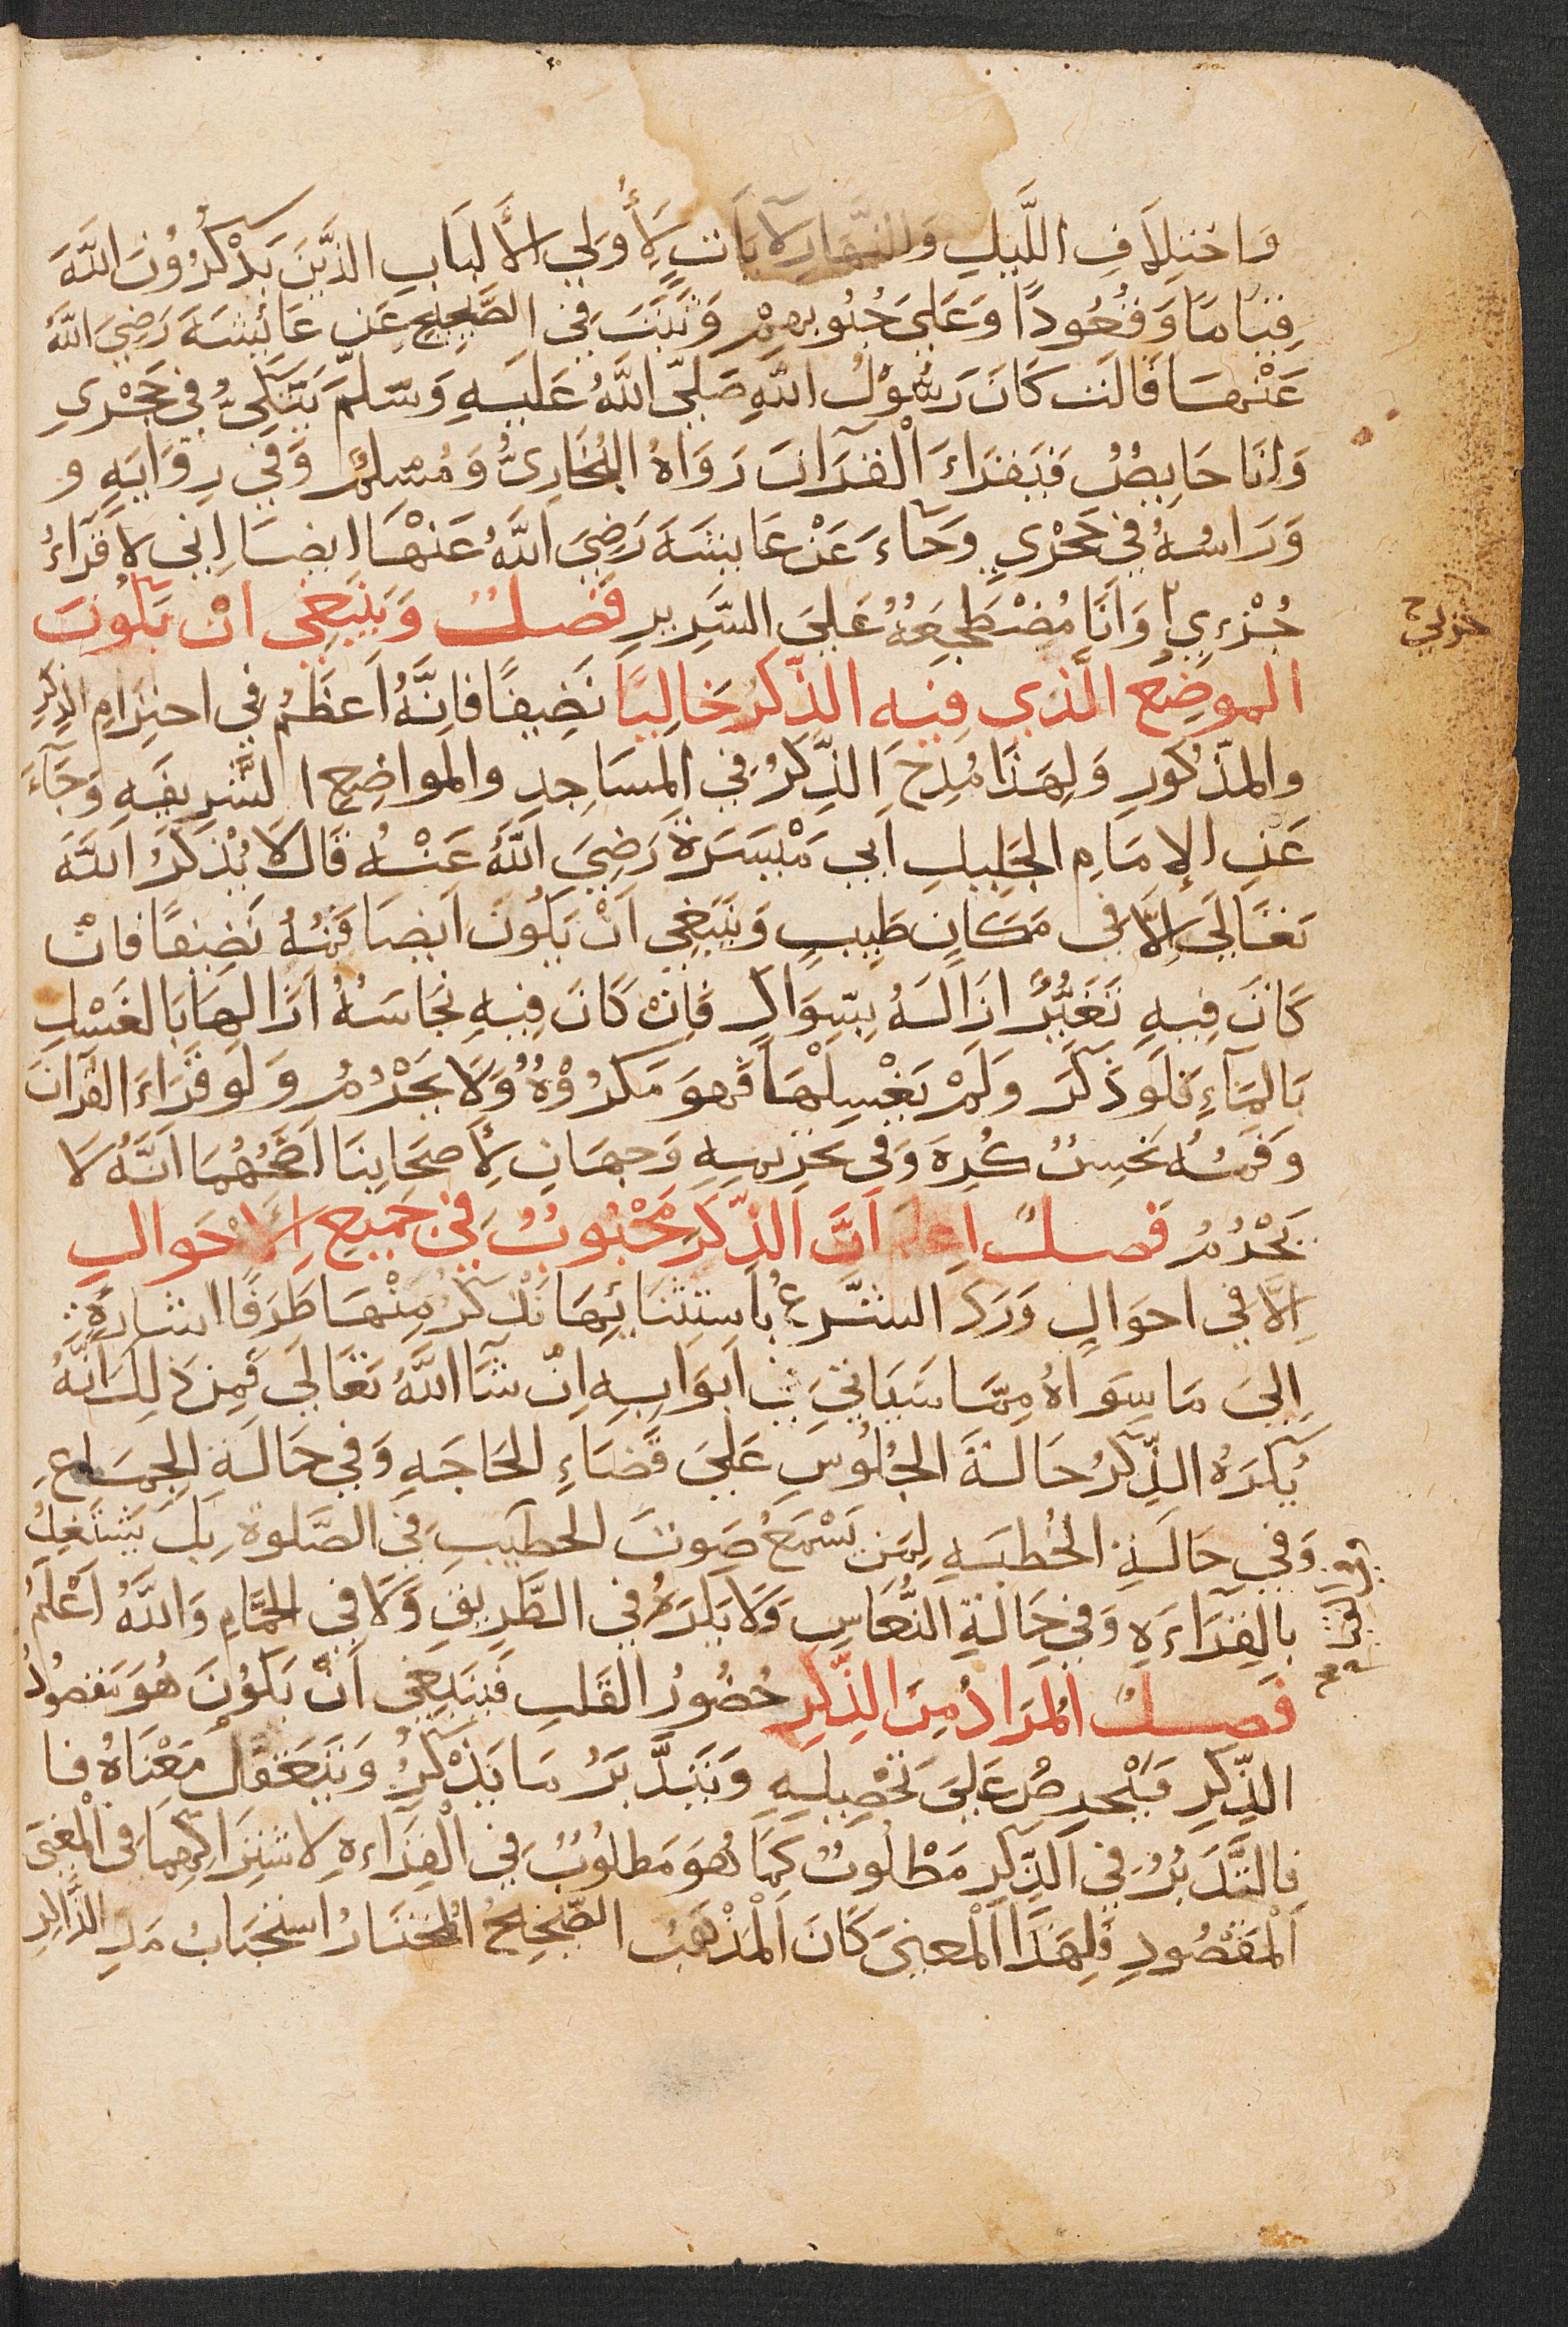 وَاختِلاَفِ اللَّيلِ وَالنَّهَارِ لآيَاتٍ لأُولِي الأَلبَابِ الذَّينَ يَذْكُرُونَ اللَّهَ
قِيَامًا وَقُعُودًا وَعَلَى جُنُوبِهِمْ وَثَبَتَ فِي الصَّحِيحِ عَن عَائِشَةَ رَضِيَ اللَّهُ
عَنْهَا قَالَت كَانَ رَسُولُ اللَّهِ صَلَّى اللَّهُ عَلَيهِ وَسَلَّمَ يَتَّكِيُ فِي حَجْرِي
وَانَا حَايِضُ فَيَقرَاءَ الْقرَانَ رَوَاهُ البُخَارِيُّ وَمُسلِمُ وَفِي رِوَايَةٍ و
وَرَاسُهُ فِي حَجْرِي وَجَاءَ عَنْ عَايشَةَ رَضِيَ اللَّهُ عَنْهَا ايضَا اِنّي لاَقرَاءُ
جُزْءِي وَانَا مُضْطَجِعَةُ عَلَى السَّرِيرِ فَصلُ وَيَنبَغِي انْ يَكُونَ
حزبي
الموضِعُ الَّذي فِيهِ الذِّكرُ خَالِيًا نَضِيفًا فَانَّهُ اَعظَمُ فِي احتِرَامِ الذِكِرِ
والمَذّكُورِ وَلِهَذَا مُدِحَ الذِّكرُ فِي المسَاجِدِ والموَاضِعِ الشَّرِيفَةِ وَجَآءَ
عَنِ الإمَامِ الجَلِيلِ ابي مَيْسَرَةَ رَضِيَ اللَّهُ عَنْهُ قَالَ لاَ يُذْكَرُ اللَّهَ
تعَالَى اِلاَّ فِي مَكَانٍ طَيِبٍ وَيَنبَغِي اَنْ يَكُونَ اَيضَا فَمُهُ نَضِيفًا فَانْ
كَانَ فِيهِ تَغَيُّرُ ازَالَهُ بِسِّوَاكٍ فَاِنْ كَانَ فِيهِ نَجَاسَةُ اَزَالهَا بَالغَسْلِ
بَالمَآءِ فَلَو ذَكَرَ وَلَمْ يَغْسِلْهَا فَهوَ مَكرُوْهُ وَلاَ يَحْرُمُ وَلَو قَرَاءَ القرَانَ
وَفَمُهُ نَجِسُ كُرِهَ وَفِي تَحْرِيمِهِ وَجهَانِ لأَصحَابِنَا اَصَحُّهُمَا انَّهُ لاَ
يَحْرُمُ فَصلُ اِعلَم اَنَّ الذِّكرَ مَحْبُوبُ فِي جَمِيعِ الأَحْوالِ
اِلاَّ فِي احوَالٍ وَرَدَ الشَّرعُ بأستثنَائِهَا نَذْكرُ مِنْهَا طَرَفًا اشَارَةً
اِلَى مَا سِوَاهُ مِمَّا سَيَاتِي فِي اَبوَابِهِ اِنْ شَآ اللَّهُ تَعَالَى فَمِن ذَلِكَ انَّهُ
يُكرَهُ الذِّكرُ حَالَةَ الجُلُوسِ عَلَى قَضَاءِ الحَاجَةِ وَفِي حَالَةِ الجِمَاعِ
وَفِي حَالَةِ الخُطبَةِ لِمَن يَسْمَعُ صَوتَ الخَطيبِ فِي الصَّلوةِ بَل يَشتَغِلُ
بالقِرَاءَةِ وَفِي حَالَةِ النُّعَاسِ وَلاَ يَكرَهُ فِي الطَّرِيقِ وَلاَ فِي الحَمَّامِ وَاللَّهُ اَعْلَمُ
فَصلُ المُرَادُ مِنَ الذِّكِرِ حُضُورُ القَلبِ فَيَنبَغِي اَنْ يَكُونَ هُوَ مَقصُودُ
الذِّكِرِ فَيَحرِصُ عَلَى تَحْصِيلِهِ وَيَتَدَّبَرُ مَا يَذْكرُ وَيَتَعَقَّلُ مَعْنَاهُ فا
فالتَّدَبُرُ فِي الذِّكِرِ مَطْلُوبُ كَمَا هُوَ مَطلُوبُ فِي الْقِرَاءةِ لاشتِرَاكِهِمَا فِي الْمَعْنَى
اَلمَقصُودِ فَلِهَذَا المَعنَى كَانَ المَذْهَبُ الصَّحِيحُ المُختَارُ استِحبَابُ مَدِ الذَّاكِرِ